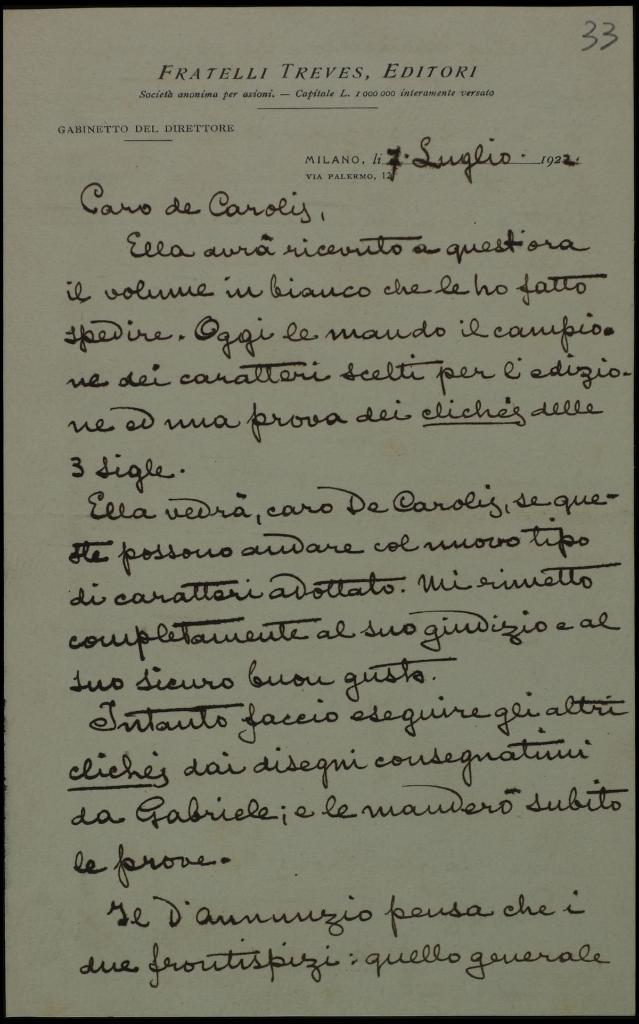 33
FRATELLI TREVES, EDITORI
Società anonima per azioni. — Capitale L. 1 000 000 interamente versato
GABINETTO DEL DIRETTORE
MILANO, li 7. Luglio. 1922.
VIA PALERMO, 12
Caro de Carolis,
Ella avrà ricevuto a quest'ora
il volume in bianco che le ho fatto
spedire. Oggi le mando il campio-
ne dei caratteri scelti per l'edizio-
ne ed una prova dei clichés delle
3 sigle.
Ella vedrà, caro De Carolis, se que-
ste possono andare col nuovo tipo
di caratteri adottato. Mi rimetto
completamente al suo giudizio e al
suo sicuro buon gusto.
Intanto faccio eseguire gli altri
clichés dai disegni consegnatimi
da Gabriele; e le manderò subito
le prove.
Il D'Annunzio pensa che i
due frontispizi: quello generale